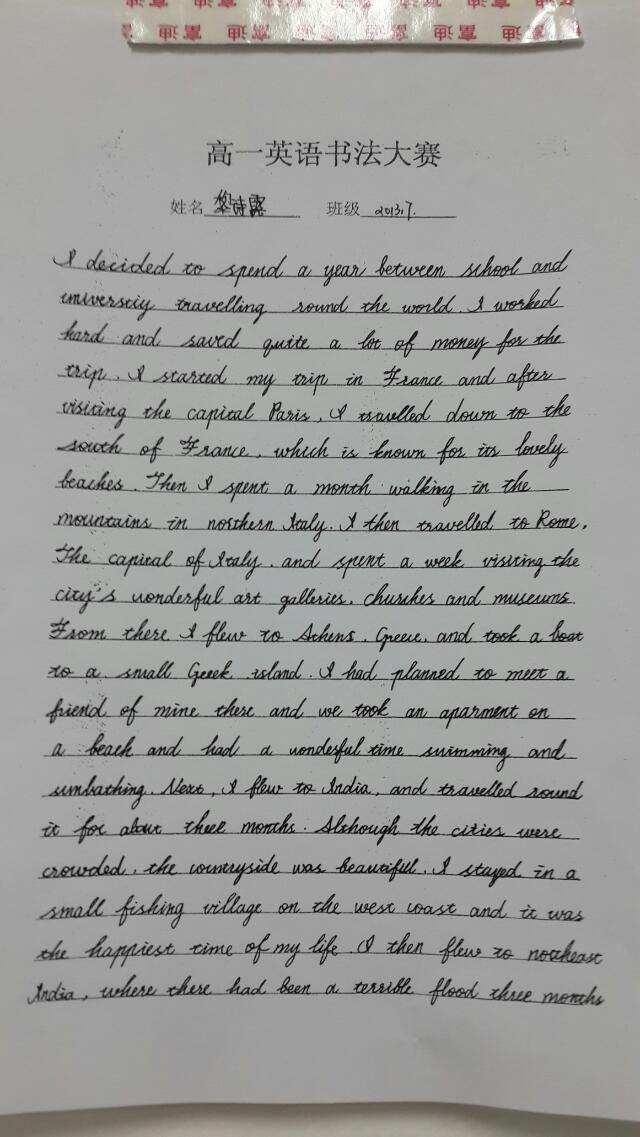 富迪 富迪 富迪 富迪 富迪 富迪 富迪
高一英语书法大赛
姓名 黎诗露 班级 2013.7.
I decided to spend a year between school and
universtiy travelling round the world. I worked
hard and saved quite a lot of money for the
trip. I started my trip in France and after
visiting the capital Paris, I travelled down to the
south of France, which is known for its lovely
beaches. Then I spent a month walking in the
mountains in northern Italy. I then travelled to Rome,
The capital of Italy. and spent a week visiting the
city's wonderful art galleries. churches and museums
From there I flew to Athens, Greece, and took a boat
to a small Greek island. I had planned to meet a
friend of mine there and we took an aparment on
a beach and had a wonderful time swimming and
sunbathing. Next, I flew to India, and travelled round
it for about three months. Although the cities were
crowded, the countryside was beautiful. I stayed in a
small fishing village on the west coast and it was
the happiest time of my life. I then flew to northeast
India, where there had been a terrible flood three months